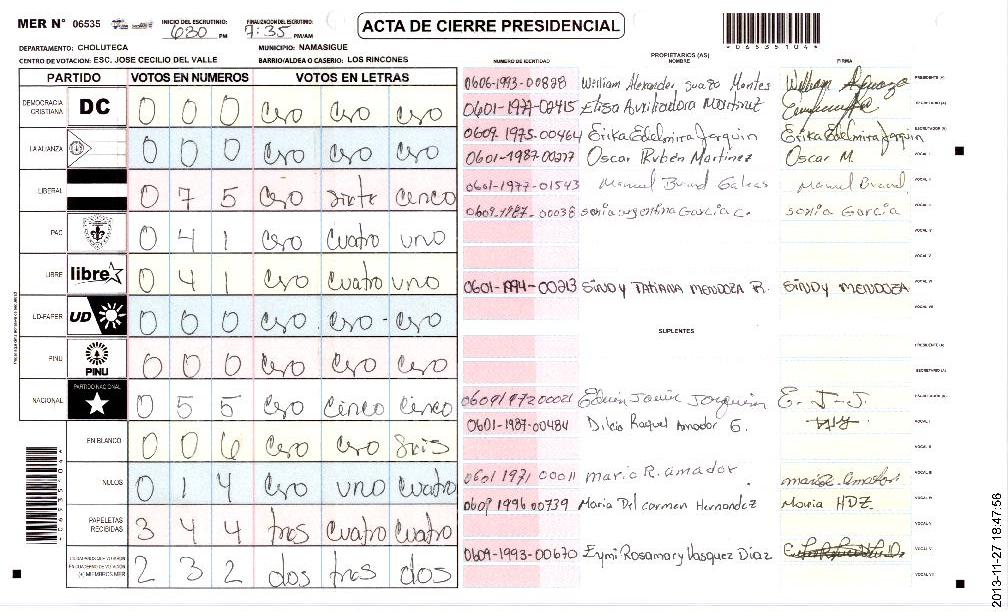 MER N° 06535
INICIO DEL ESCRUTINIO: 630 PM
FINALIZACION DEL ESCRUTINIO: 7:35 PM/AM
ACTA DE CIERRE PRESIDENCIAL
-06535104-
DEPARTAMENTO: CHOLUTECA
MUNICIPIO: NAMASIGUE
CENTRO DE VOTACION: ESC. JOSE CECILIO DEL VALLE
BARRIO/ALDEA O CASERIO: LOS RINCONES
PARTIDO VOTOS EN NUMEROS VOTOS EN LETRAS
DEMOCRACIA CRISTIANA DC 0 0 0 Cero Cero Cero
LA ALIANZA 0 0 0 Cero Cero Cero
LIBERAL 0 7 5 Cero siete cenco
PAC 0 4 1 Cero Cuatro uno
LIBRE libre 0 4 1 Cero Cuatro uno
UD-FAPER UD 0 0 0 Cero Cero Cero
PINU PINU 0 0 0 Cero Cero Cero
NACIONAL PARTIDO NACIONAL 0 5 5 Cero Cinco Cinco
EN BLANCO 0 0 6 Cero Cero Seis
NULOS 0 1 4 Cero uno Cuatro
PAPELETAS RECIBIDAS 3 4 4 tres Cuatro Cuatro
CIUDADANOS QUE VOTARON EN CUADERNO DE VOTACION (+) MIEMBROS MER 2 3 2 dos tres dos
PROPIETARIOS (AS)
NUMERO DE IDENTIDAD NOMBRE FIRMA
0606-1993-00828 William Alexander suazo Montes William PRESIDENTE (A)
0601-1977-02415 Elisa Auxiliadora Martinez SECRETARIO (A)
0609 1975-00464 Erika Edelmira Jorquin Erika Edelmira Jorquin ESCRUTADOR (A)
0601-1987-00217 Oscar Ruben Martinez Oscar M. VOCAL I
0601-1977-01543 Manuel VOCAL II
0609-1987-00038 sonia argentina Garcia C. sonia Garcia VOCAL III
VOCAL IV
VOCAL V
0601-1994-00213 SINDY TATIANA MENDOZA R. SINDY MENDOZA VOCAL VI
VOCAL VII
SUPLENTES
PRESIDENTE (A)
SECRETARIO (A)
0609197200021 Edwin Javier Jorquin E. J-J. ESCRUTADOR (A)
0601-1987-00484 Dilcia Raquel Amador G. VOCAL I
VOCAL II
0601 1971 00011 maria R. amador maria R. amador VOCAL III
0609 1996 00739 Maria Del carmen Hernandez Maria HDZ. VOCAL IV
VOCAL V
0609-1993-00670 Eymi Rosamary Vasquez Diaz VOCAL VI
VOCAL VII
2013-11-27 18:47:56